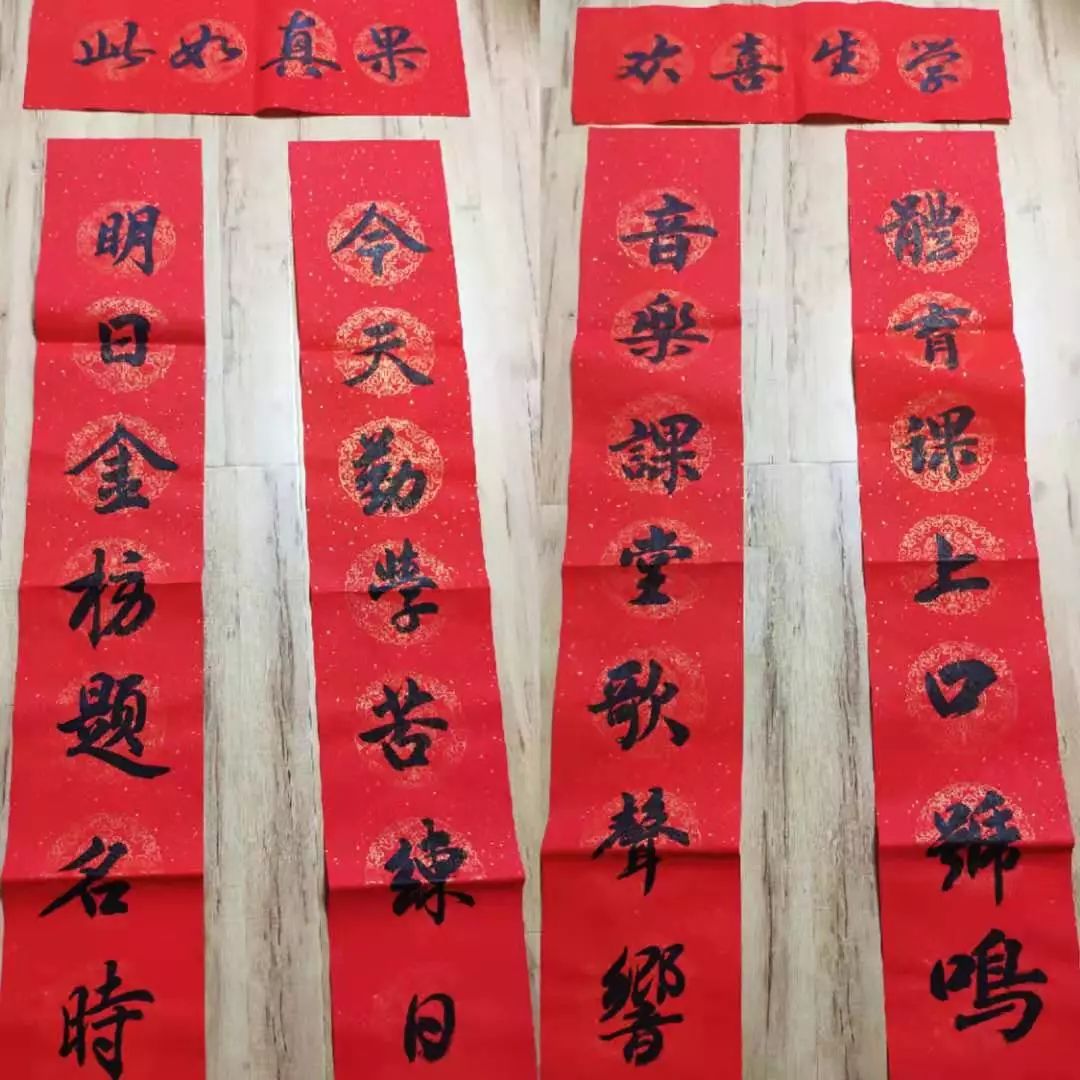 果真如此
今天勤学苦練日
明日金榜题名時
学生喜欢
體育课上口號鳴
音樂課堂歌聲響